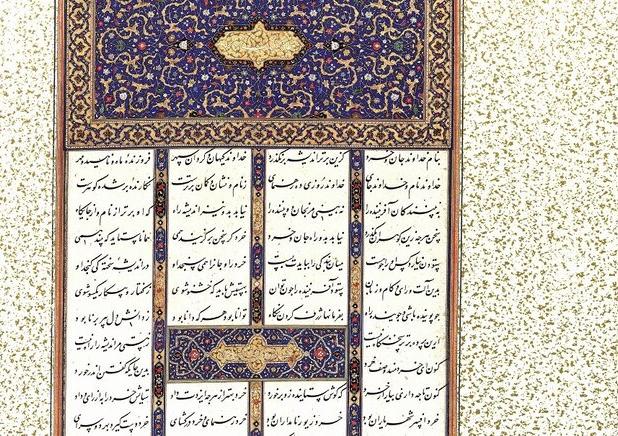 بنام خداوند جان و خرد کزین برتر اندیشه برنگذرد خداوند کیهان و گردان سپهر فروزنده ماه و ناهید و مهر
خداوند نام و خداوند جای خداوند روزی ده رهنمای ز نام و نشان و گمان برترست نگارنده بر شده گوهرست
به بینندگان آفریننده را نه بینی مرنجان دو بیننده را نیابد بدو نیز اندیشه راه که او برتر از نام و از جایگاه
سخن هر چه زین گوهران بگذرد نیابد بدو راه جان و خرد خرد گر سخن برگزیند همی همانا ستاید که بیند همی
ستودن میان بندگی را ببایدت بست خرد را و جان را همی سنجد او در اندیشه سخته کی گنجد او
بدین آلت و رای و جان و زبان ستود آفریننده را چون توان بهستیش باید که خستو شوی ز گفتار بیکار یکسو شوی
بفرمانها ژرف کردن نگاه توانا بود هر که دانا بود ز دانش دل پیر برنا بود
ازین پرده برتر سخن گاه نیست ز هستی مر اندیشه را راه نیست
کنون ای خردمند وصف خرد بدین جایگه گفتن اندر خورد
کنون تا چه داری بیار از خرد که گوش زو برخورد خرد بهتر از هر چه ایزدت داد ستایش خرد را به از راه داد
خرد افسر شهریاران بود خرد زیور نامداران بود خرد رهنمای و خرد دلگشای خرد دست گیرد بهر دو سرای